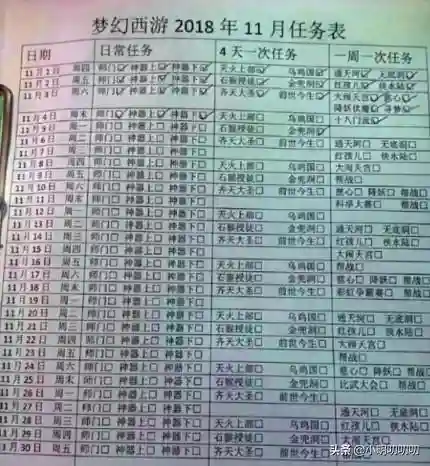 梦幻西游 2018 年 11 月任务表
日期 日常任务 4 天一次任务 一周一次任务
11月1日 周四 师门☑ 神器上☑ 神器下☑ 天火上部☑ 乌鸡国☑ 通天河☑ 无底洞☑
11月2日 周五 师门☑ 神器上☑ 神器下☑ 石猴授徒☑ 金兜洞☑ 红孩儿☑ 侠水陆☑
11月3日 周六 师门☑ 神器上☑ 神器下☑ 齐天大圣☑ 前世今生☑ 大闹天宫☑ 慈心☑
降妖伏魔☑
11月4日 周末 师门☑ 神器上☑ 神器下☑ 天火上部☐ 乌鸡国☐ 十八门派☑
周一 师门☐ 神器上☐ 神器下☐ 石猴授徒☐ 金兜洞☑
周二 师门☐ 神器上☐ 神器下☐ 齐天大圣☐ 前世今生☐ 通天河☐ 无底洞☐
师门☐ 神器上☐ 神器下☐ 红孩儿☐ 侠水陆☐
11月8日 周四 师门☐ 神器上☐ 神器下☐ 天火上部☐ 乌鸡国☐ 大闹天宫☐
周五 师门☐ 神器上☐ 神器下☐ 石猴授徒☐ 金兜洞☐ 帮战☐
11月10日 周六 师门☐ 神器上☐ 神器下☐ 齐天大圣☐ 前世今生☐ 慈心☐ 降妖☐ 帮战☐
11月11日 周末 师门☐ 神器上☐ 神器下☐ 科举大赛☐
11月12日 周一 师门☐ 神器上☐ 神器下☐ 天火上部☐ 乌鸡国☐
11月13日 周二 师门☐ 神器上☐ 神器下☐ 石猴授徒☐ 金兜洞☐ 通天河☐ 无底洞☐
11月14日 周三 师门☐ 神器上☐ 神器下☐ 齐天大圣☐ 前世今生☐ 红孩儿☐ 侠水陆☐
11月15日 周四 师门☐ 神器上☐ 神器下☐ 大闹天宫☐
11月16日 周五 师门☐ 神器上☐ 神器下☐ 天火上部☐ 乌鸡国☐ 帮战☐
11月17日 周六 师门☐ 神器上☐ 神器下☐ 石猴授徒☐ 金兜洞☐ 慈心☐ 降妖☐ 帮战☐
11月18日 周末 师门☐ 神器上☐ 神器下☐ 齐天大圣☐ 前世今生☐ 彩虹争霸赛☐
11月19日 周一 师门☐ 神器上☐ 神器下☐
11月20日 周二 师门☐ 神器上☐ 神器下☐ 天火上部☐ 乌鸡国☐ 通天河☐ 无底洞☐
11月21日 周三 师门☐ 神器上☐ 神器下☐ 石猴授徒☐ 金兜洞☐ 红孩儿☐ 侠水陆☐
11月22日 周四 师门☐ 神器上☐ 神器下☐ 齐天大圣☐ 前世今生☐ 大闹天宫☐
11月23日 周五 师门☐ 神器上☐ 神器下☐ 帮战☐
11月24日 周六 师门☐ 神器上☐ 神器下☐ 天火上部☐ 乌鸡国☐ 慈心☐ 降妖☐ 帮战☐
11月25日 周末 师门☐ 神器上☐ 神器下☐ 石猴授徒☐ 金兜洞☐ 比武大会☐
11月26日 周一 师门☐ 神器上☐ 神器下☐ 齐天大圣☐ 前世今生☐
11月27日 周二 师门☐ 神器上☐ 神器下☐ 通天河☐ 无底洞☐
11月28日 周三 师门☐ 神器上☐ 神器下☐ 天火上部☐ 乌鸡国☐ 红孩儿☐ 侠水陆☐
11月29日 周四 师门☐ 神器上☐ 神器下☐ 石猴授徒☐ 金兜洞☐ 大闹天宫☐
11月30日 周五 师门☐ 神器上☐ 神器下☐ 齐天大圣☐
头条 @小明叨叨叨